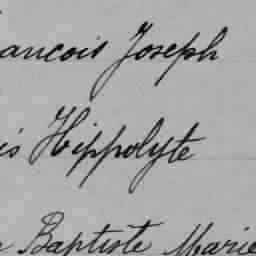 ancois Joseph
is Hippolyte
Baptiste Marie